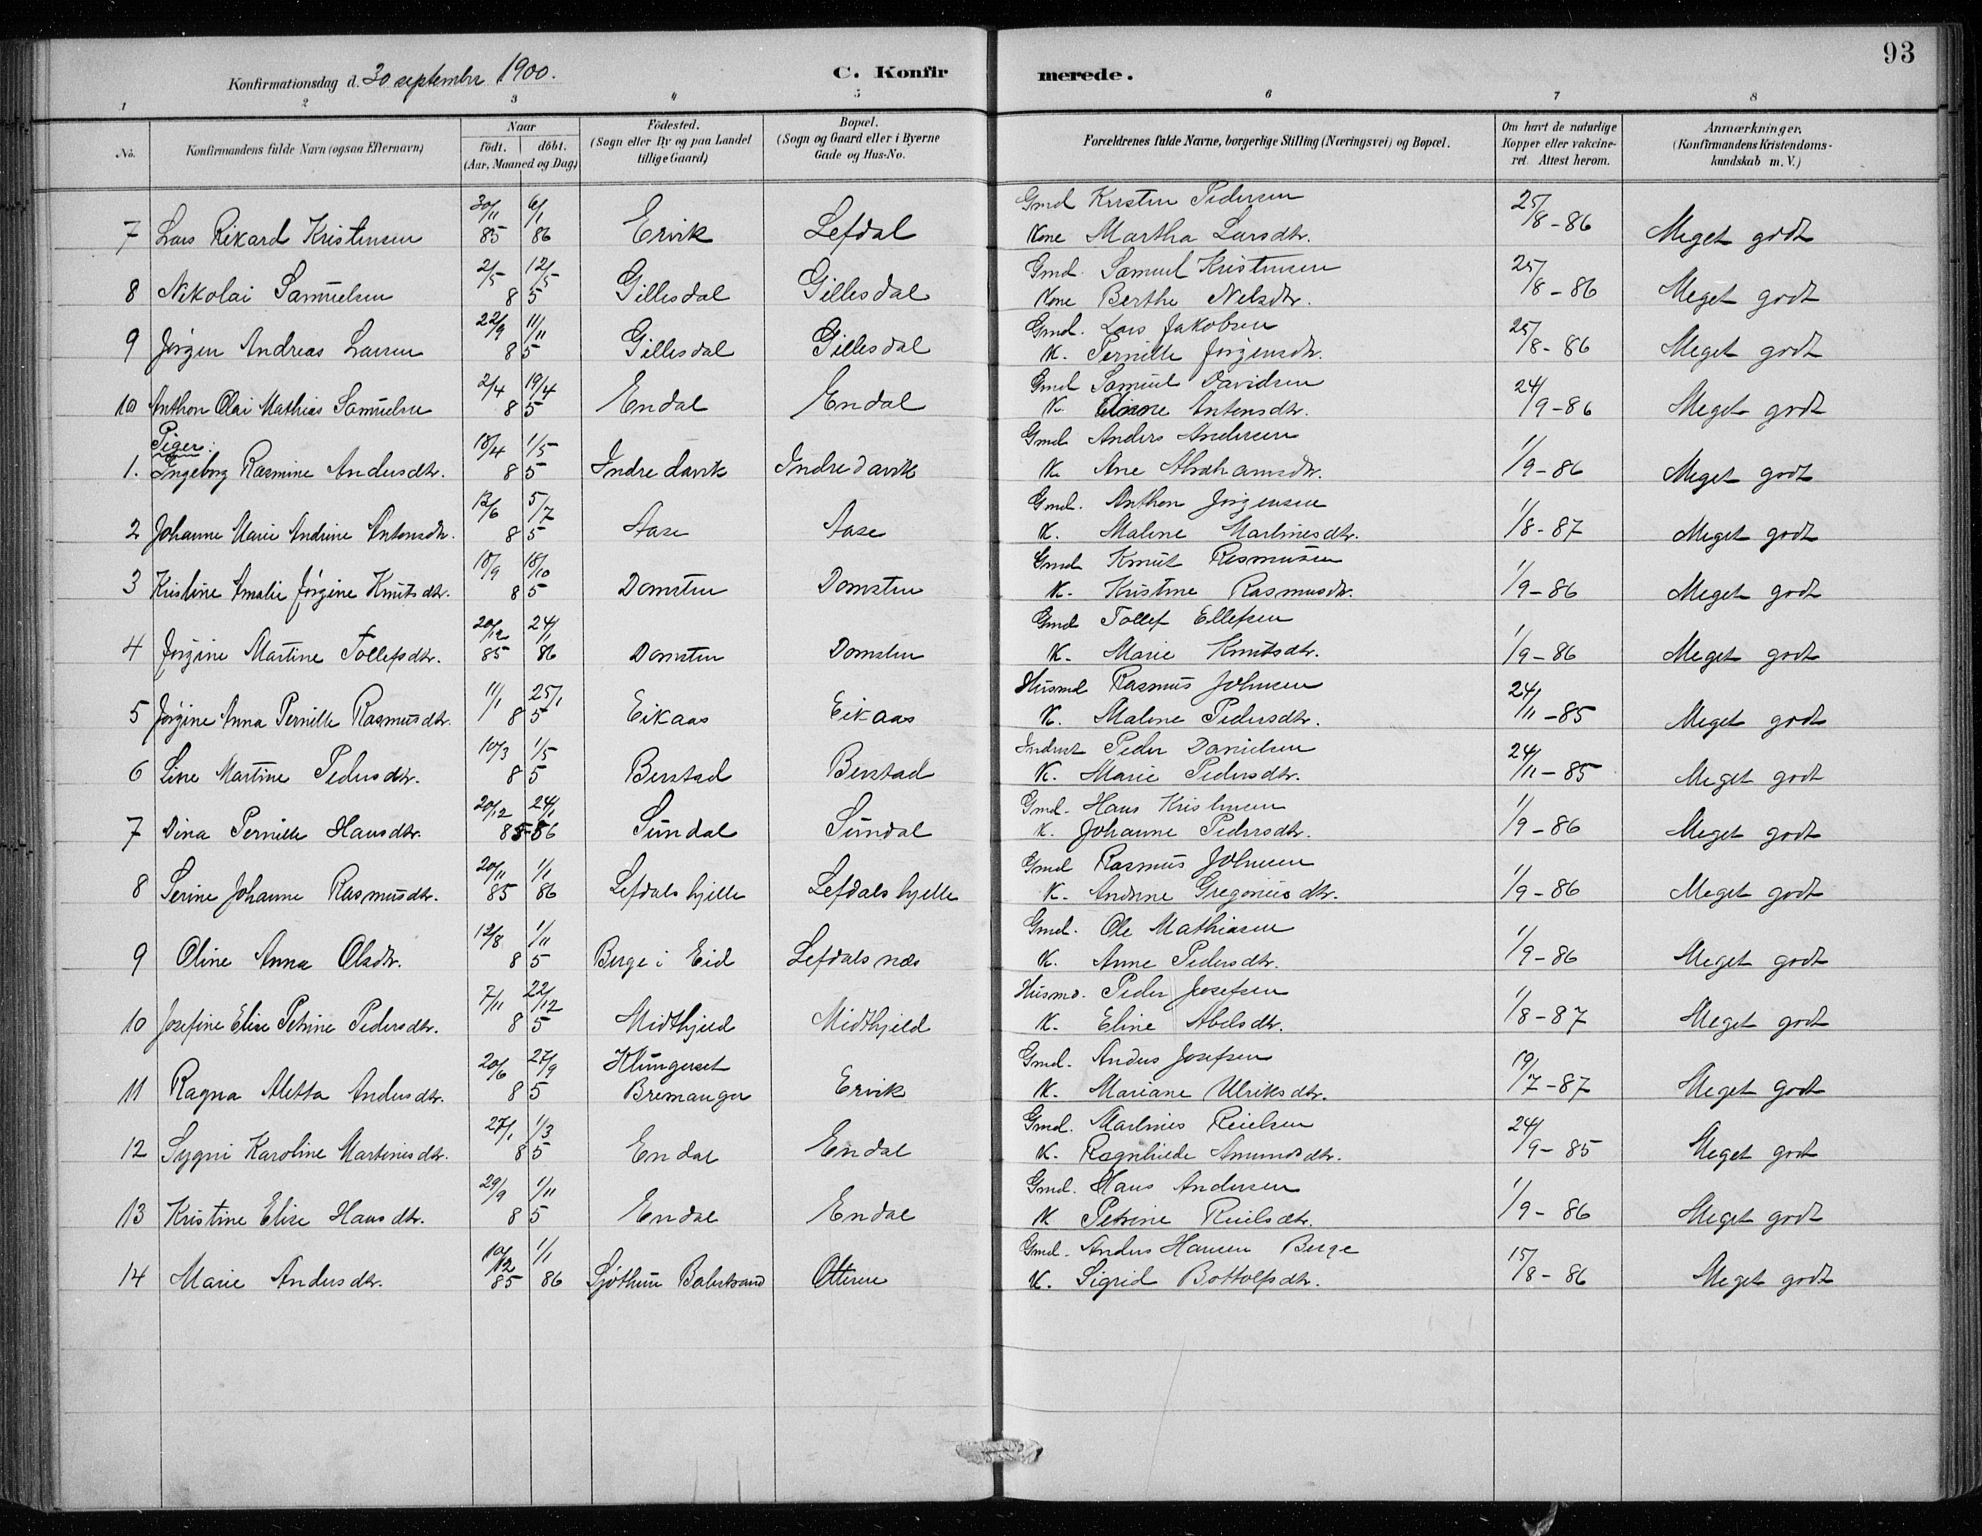 93
Konfirmationsdag d. 30 september 1900. C. Konfirmerede.
1 2 3 4 5 6 7 8
No. Konfirmandens fulde Navn (ogsaa Efternavn) Naar født. døbt. (Aar, Maaned og Dag) Fødested. (Sogn eller By og paa Landet tillige Gaard) Bopæl. (Sogn og Gaard eller i Byerne Gade og Hus-No. Forældrenes fulde Navne, borgerlige Stilling (Næringsvei) og Bopæl. Om havt de naturlige Kopper eller vakcineret. Attest herom. Anmærkninger. (Konfirmandens Kristendomskundskab m. V.)
30/11 6/1 Gmd Kristen Pedersen 25/8-86
7 Lars Rikard Kristensen 85 86 Ervik Lefdal Kone Martha Larsdtr. Meget godt
2/5 12/5 Gmd. Samuel Kristensen 25/8-86
8 Nikolai Samuelsen 85 Gillesdal Gillesdal Kone Berthe Nelsdtr. Meget godt
22/9 11/11 Gmd. Lars Jakobsen 25/8-86
9 Jørgen Andreas Larsen 85 Gillesdal Gillesdal K. Pernille Jørgensdtr. Meget godt
2/4 19/4 Gmd Samuel Davidsen 24/9-86
10 Anthon Olai Mathias Samuelsen 85 Endal Endal K. Antonsdtr. Meget godt
Piger:
18/4 1/5 Gmd Anders Andersen 1/9-86
1. Ingeborg Rasmine Andersdtr. 85 Indre davik Indre davik K. Ane Abrahamsdtr. Meget godt
12/6 5/7 Gmd. Anthon Jørgensen 1/8-87
2 Johanne Marie Andrine Antonsdtr. 85 Aase Aase K. Malene Martinesdtr. Meget godt
18/9 18/10 Gmd Knut Rasmusen 1/9-86
3 Kristine Amalie Jørgine Knutsdtr. 85 Domsten Domsten K. Kristine Rasmusdtr. Meget godt
20/12 24/1 Gmd Tollef Ellefsen 1/9-86
4 Jørgine Martine Tollefsdtr. 85 86 Domsten Domsten K. Marie Knutsdtr. Meget godt
11/1 25/1 Husmd Rasmus Johnsen 24/11-85
5 Jørgine Anna Pernille Rasmusdtr. 85 Eikaas Eikaas K. Malene Pedersdtr. Meget godt
10/3 1/5 Inderst Peder Danielsen 24/11-85
6 Line Martine Pedersdtr. 85 Berstad Berstad K. Marie Pedersdtr. Meget godt
20/12 24/1 Gmd. Hans Kristensen 1/9-86
7 Dina Pernille Hansdtr. 85-86 Sundal Sundal K. Johanne Pedersdtr. Meget godt
20/11 1/1 Gmd Rasmus Johnsen 1/9-86
8 Serine Johanne Rasmusdtr. 85 86 Lefdals hjelle Lefdals hjelle K. Andrine Gregoriusdtr. Meget godt
12/8 1/11 Gmd. Ole Mathiasen 1/9-86
9 Oline Anna Olsdtr. 85 Berge i Eid Lefdals næs K. Anne Pedersdtr. Meget godt
7/11 22/12 Husmd. Peder Josefsen 1/8-87
10 Josefine Elise Petrine Pedersdtr. 85 Midthjeld Midthjeld K. Eline Abelsdtr. Meget godt
20/6 27/9 Klungerset Gmd. Anders Josefsen 19/7-87
11 Ragna Aletta Andersdtr. 85 Bremanger Ervik K. Mariane Ulriksdtr. Meget godt
27/1 1/3 Gmd. Martines Reielsen 24/9-85
12 Sygni Karoline Martinesdtr. 85 Endal Endal K. Ragnhilde Amundsdtr. Meget godt
29/9 1/11 Gmd. Hans Andersen 1/9-86
13 Kristine Elise Hansdtr. 85 Endal Endal K Petrine Reielsdtr. Meget godt
10/12 1/1 Gmd. Anders Hansen Berge 15/8-86
14 Marie Andersdtr. 85 86 Balestrand Otteren K. Sigrid Bottolfsdtr. Meget godt